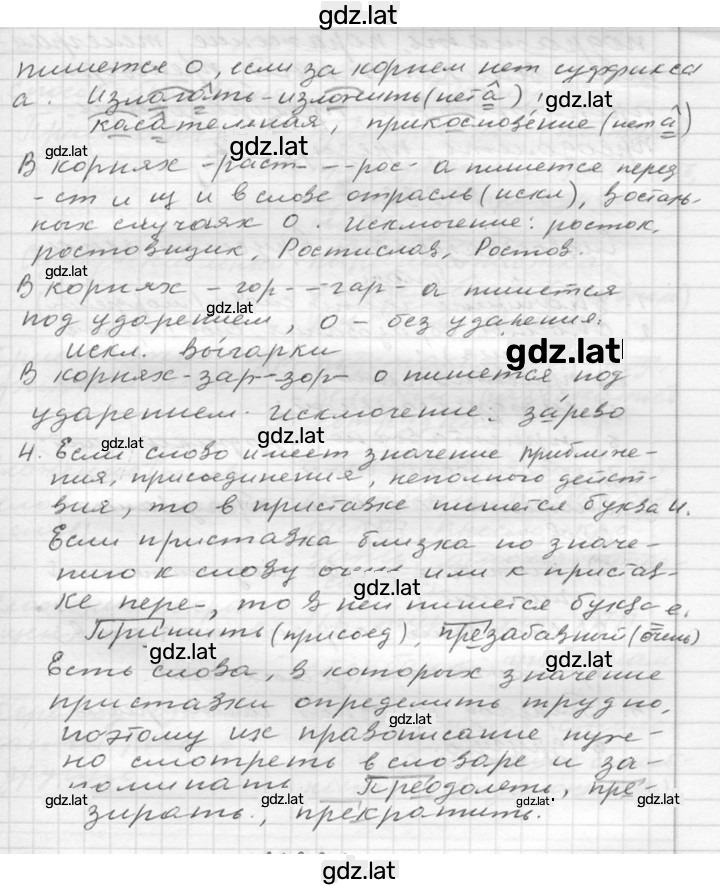 gdz.lat
пишется о, если за корнем нет суффикса
а. Излагать - изложить (нет а),
gdz.lat
касательная, прикосновение (нет а)
gdz.lat
В корнях -раст- - -рос- а пишется перед
-ст и щ и в слове отрасль (искл), в осталь-
ных случаях о. Исключение: росток,
ростовщик, Ростислав, Ростов.
gdz.lat
В корнях -гор- - -гар- а пишется
gdz.lat
под ударением, о - без ударения.
Искл. выгарки
gdz.lat
В корнях -зар- -зор- о пишется под
ударением. Исключение: зарево
gdz.lat gdz.lat
4. Если слово имеет значение приближе-
ния, присоединения, неполного дейст-
вия, то в приставке пишется буква и.
Если приставка близка по значе-
нию к слову очень или к пристав-
gdz.lat
ке пере-, то в ней пишется буква е.
Пришить (присоед), презабавный (очень)
gdz.lat gdz.lat
Есть слова, в которых значение
приставки определить трудно,
gdz.lat
поэтому их правописание нуж-
но смотреть в словаре и за-
поминать Преодолеть, пре-
gdz.lat gdz.lat gdz.lat gdz.lat
зирать, прекратить.
gdz.lat